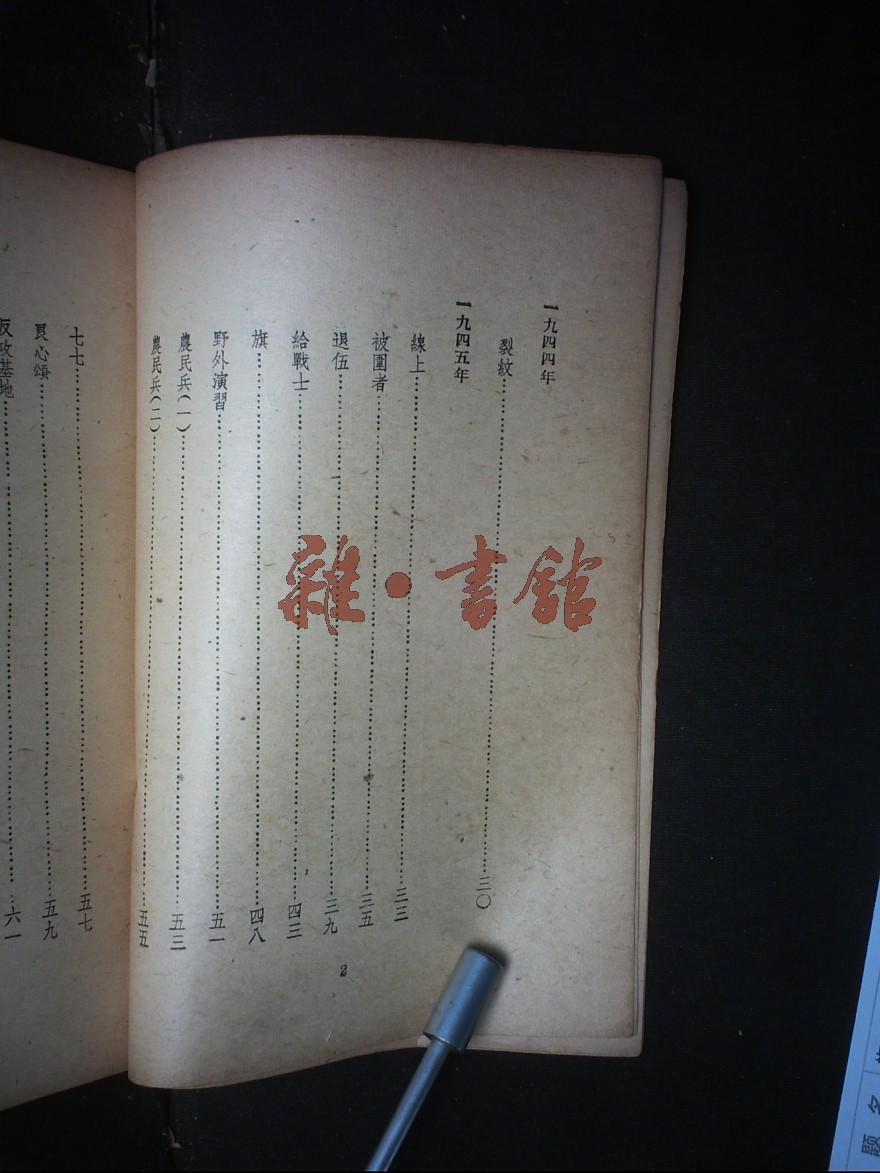 一九四四年
裂紋……三〇
一九四五年
線上……三三
被圍者……三五
退伍……三九
給戰士……四三
旗……四八
野外演習……五一
農民兵(一)……五三
農民兵(二)……五五
2
七七……五七
良心頌……五九
反攻基地……六一
雜·書館
題名